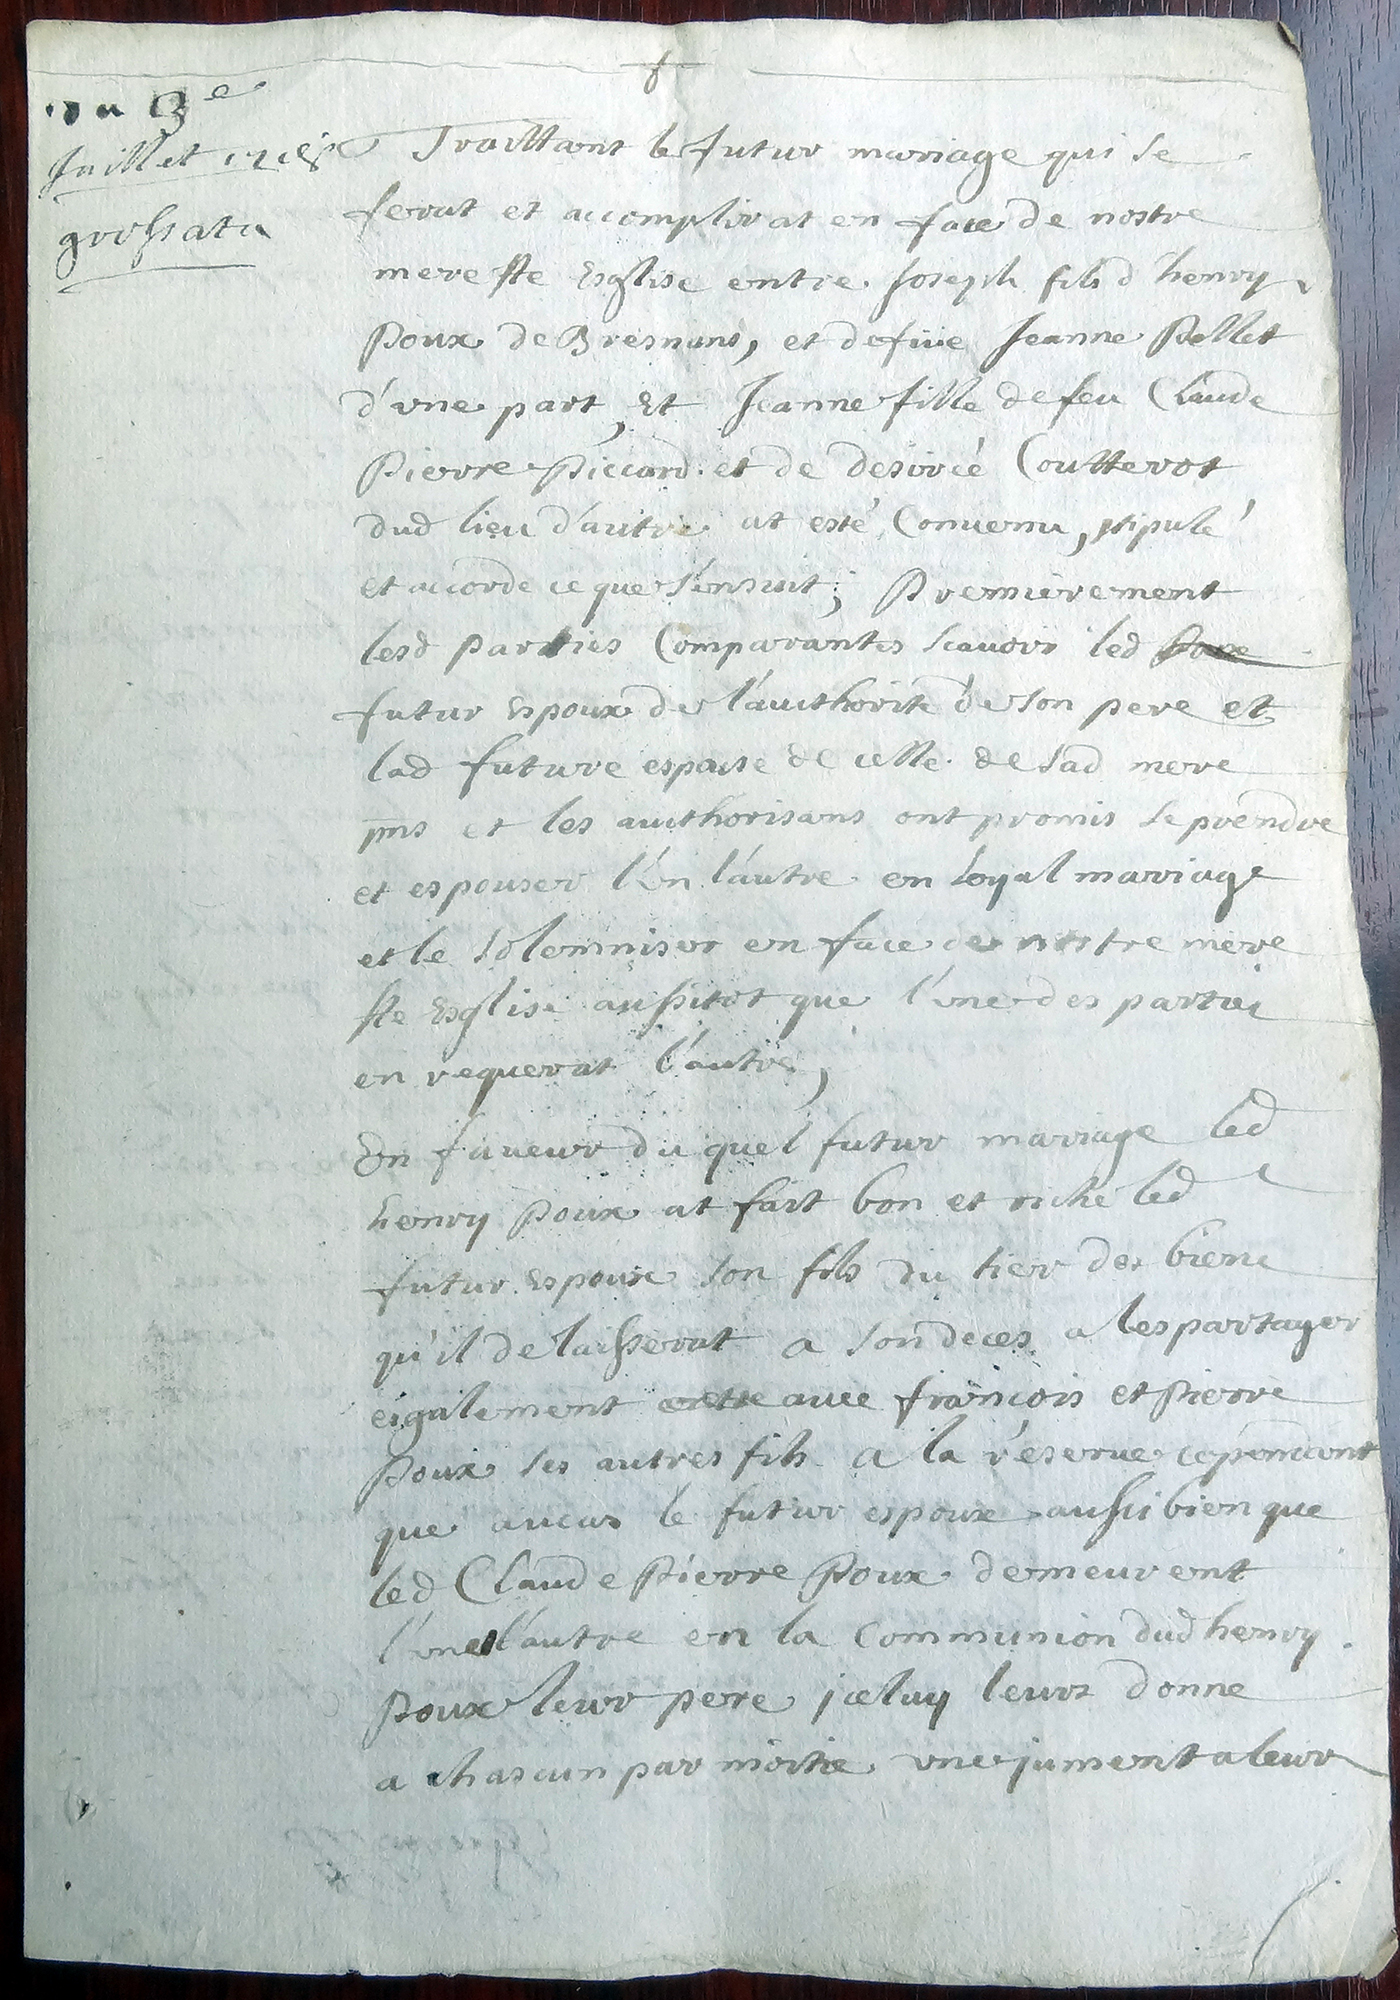 du 3e
Juillet
grossata
Traittant le futur mariage qui se
ferat et accomplirat en face de nostre
mere ste Esglise entre Joseph fils d'henry
Poux de Bresnans, et de füe Jeanne Pellet
d'vne part, Et Jeanne fille de feu Claude
Pierre Piccard et de desireé Coutterot
dud lieu d'autre at esté Conuenu, stipulé
et accorde ce que s'ensuit; Premierement
lesd parties Comparantes scauoir led
futur Espoux de l'authorité de son pere et
lad future espouse de celle de sad mere
pns et les authorisans ont promis se prendre
et espouser l'vn l'autre en loyal mariage
et le solemniser en face de nostre mere
ste Esglise aussitot que l'vne des parties
en requerat l'autre,
En faueur du quel futur mariage led
henry Poux at fait bon et riche led
futur Espoux son fils du tier des biens
qu'il delaisserat a son deces a les partager
eigalement auec francois et Pierre
Poux ses autres fils a la réserue cependant
que le futur espoux aussi bien que
led Claude Pierre Poux demeurent
l'vne l'autre en la Communion dud henry
Poux leur pere iceluy leur donne
a chascun par moitie vne jument a leur